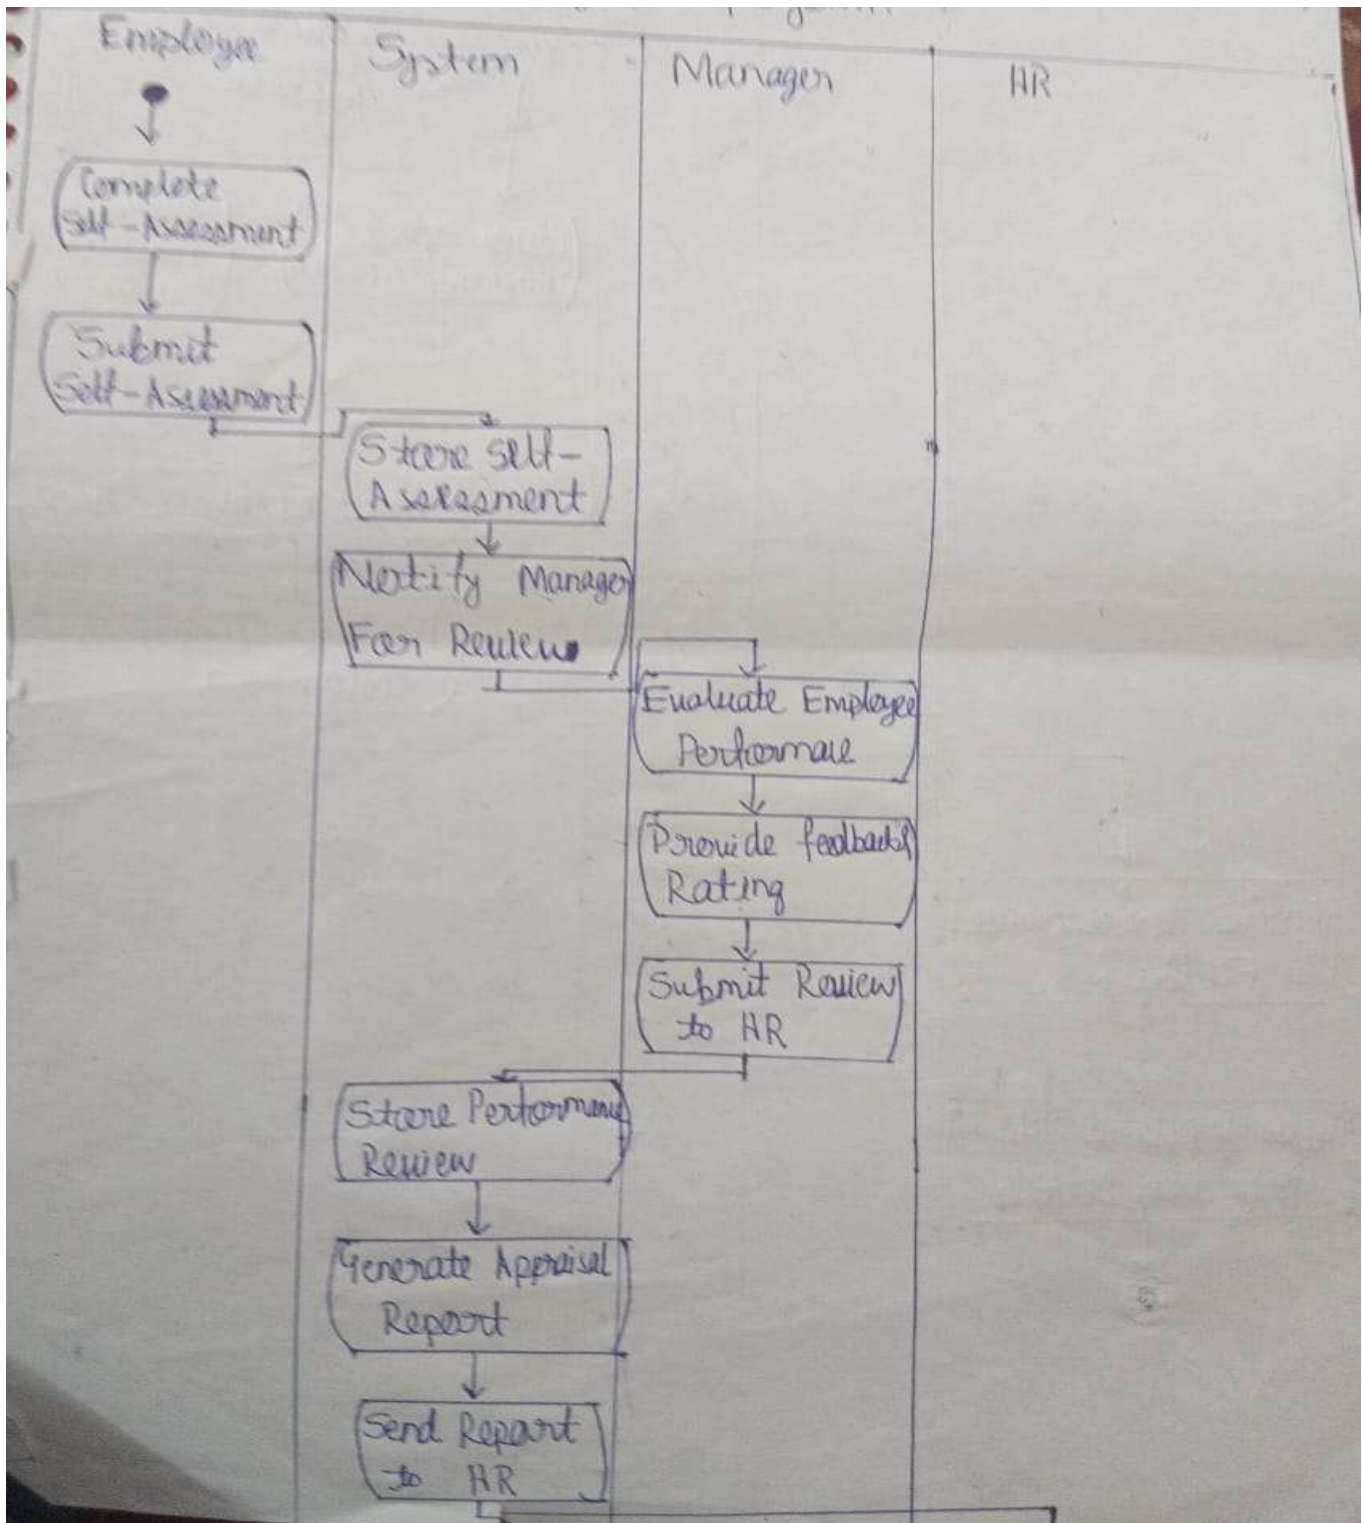 Employee
System
Manager
HR
Complete
Self-Assessment
Submit
Self-Assessment
Store Self-
Assessment
Notify Manager
For Review
Evaluate Employee
Performace
Provide feedback
Rating
Submit Review
to HR
Store Performance
Review
Generate Appraisal
Report
Send Report
to HR